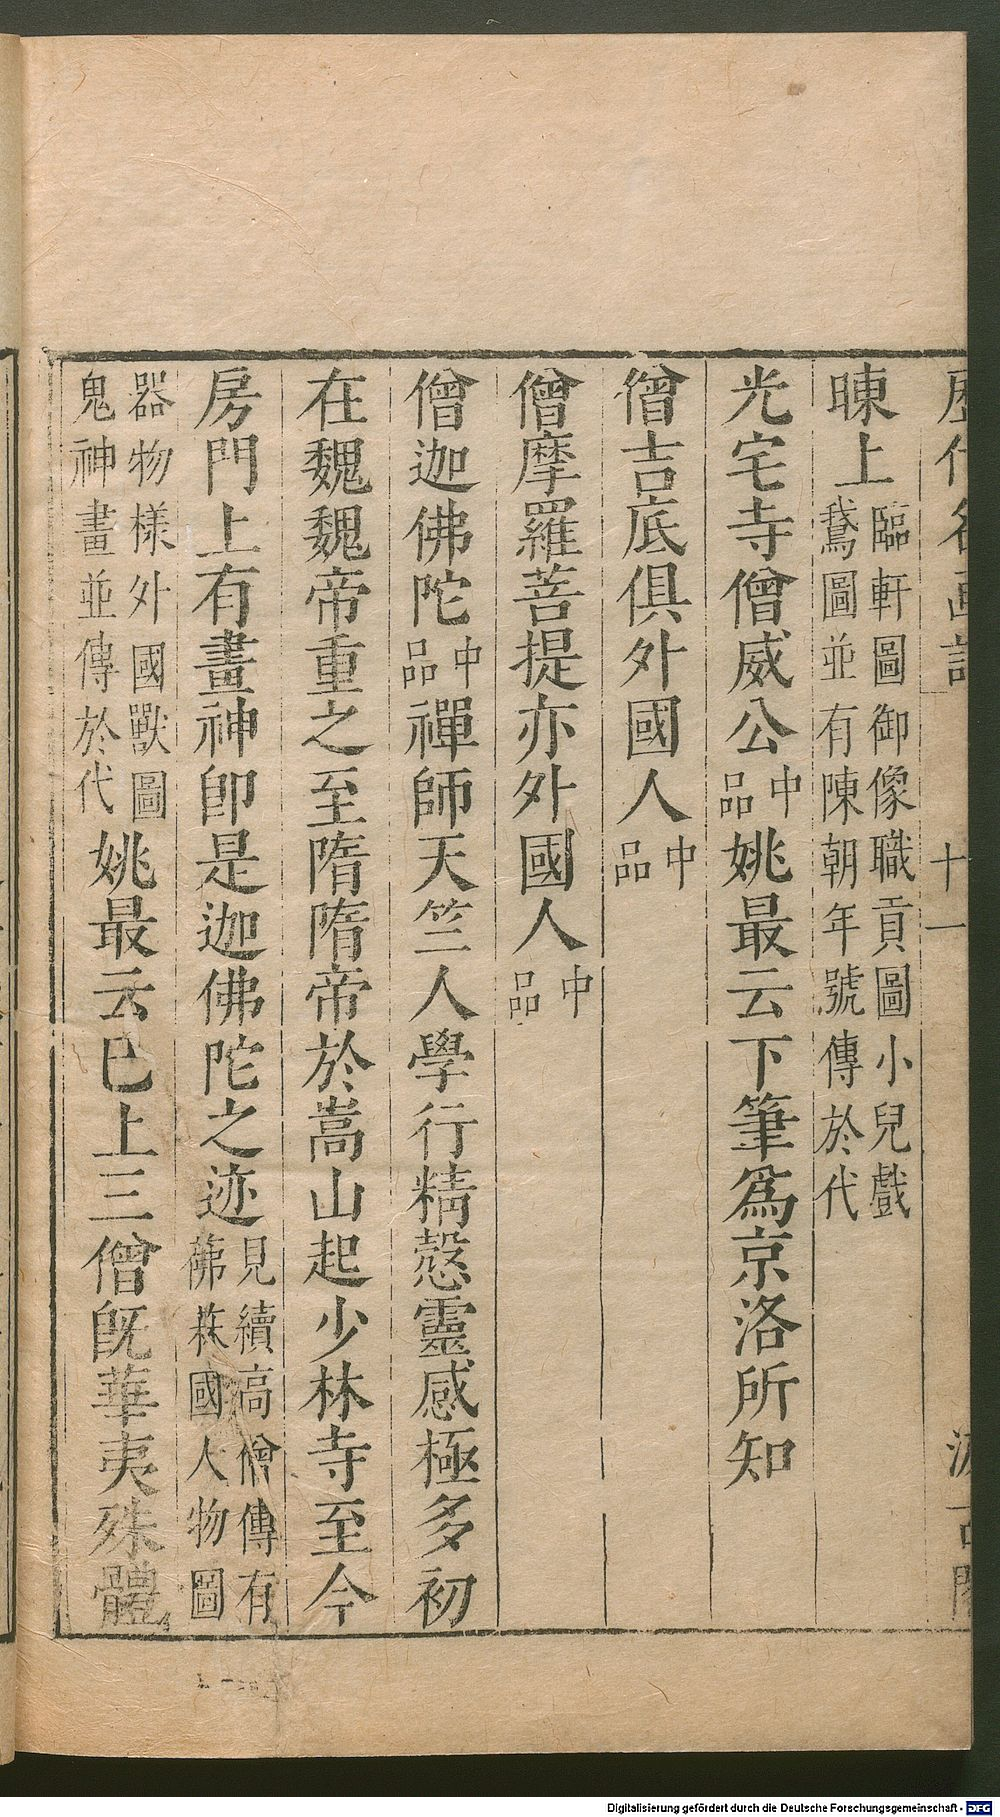 歷代名畫記 十一 汲古閣
暕上臨軒圖御像職貢圖小兒戲鵞圖並有陳朝年號傳於代
光宅寺僧威公中品姚最云下筆爲京洛所知
僧吉底俱外國人中品
僧摩羅菩提亦外國人中品
僧迦佛陀中品禪師天竺人學行精慤靈感極多初
在魏魏帝重之至隋隋帝於嵩山起少林寺至今
房門上有畫神卽是迦佛陀之迹見續高僧傳有
佛菻國人物圖
器物樣外國獸圖
鬼神畫並傳於代姚最云巳上三僧旣華夷殊體
Digitalisierung gefördert durch die Deutsche Forschungsgemeinschaft - DFG